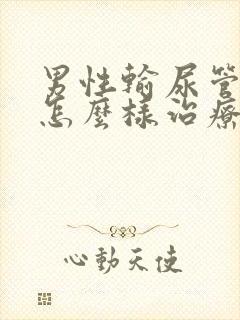 男性輸尿管
怎麼樣治療
心動天使